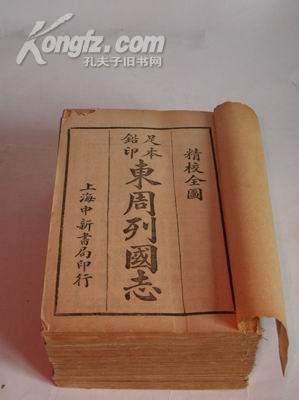 Kongfz.com
孔夫子旧书网
精校全圖
足本
鉛印
東周列國志
上海申新書局印行